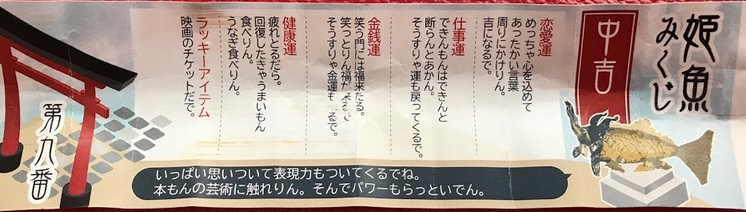 姫魚
みくじ
中吉
恋愛運
めっちゃ心を込めて
あったかい言葉
周りにかけりん。
吉になるで。
仕事運
できんもんはできんと
断らんとあかん。
そうすりゃ運も戻ってくるで。
金銭運
笑う門には福来たる。
笑っとりん福が来るで
そうすりゃ金運も
るで。
健康運
疲れとるだら。
回復したきゃうまいもん
食べりん。
うなぎ食べりん。
ラッキーアイテム
映画のチケットだで。
第九番
いっぱい思いついて表現力もついてくるでね。
本もんの芸術に触れりん。そんでパワーもらっといでん。